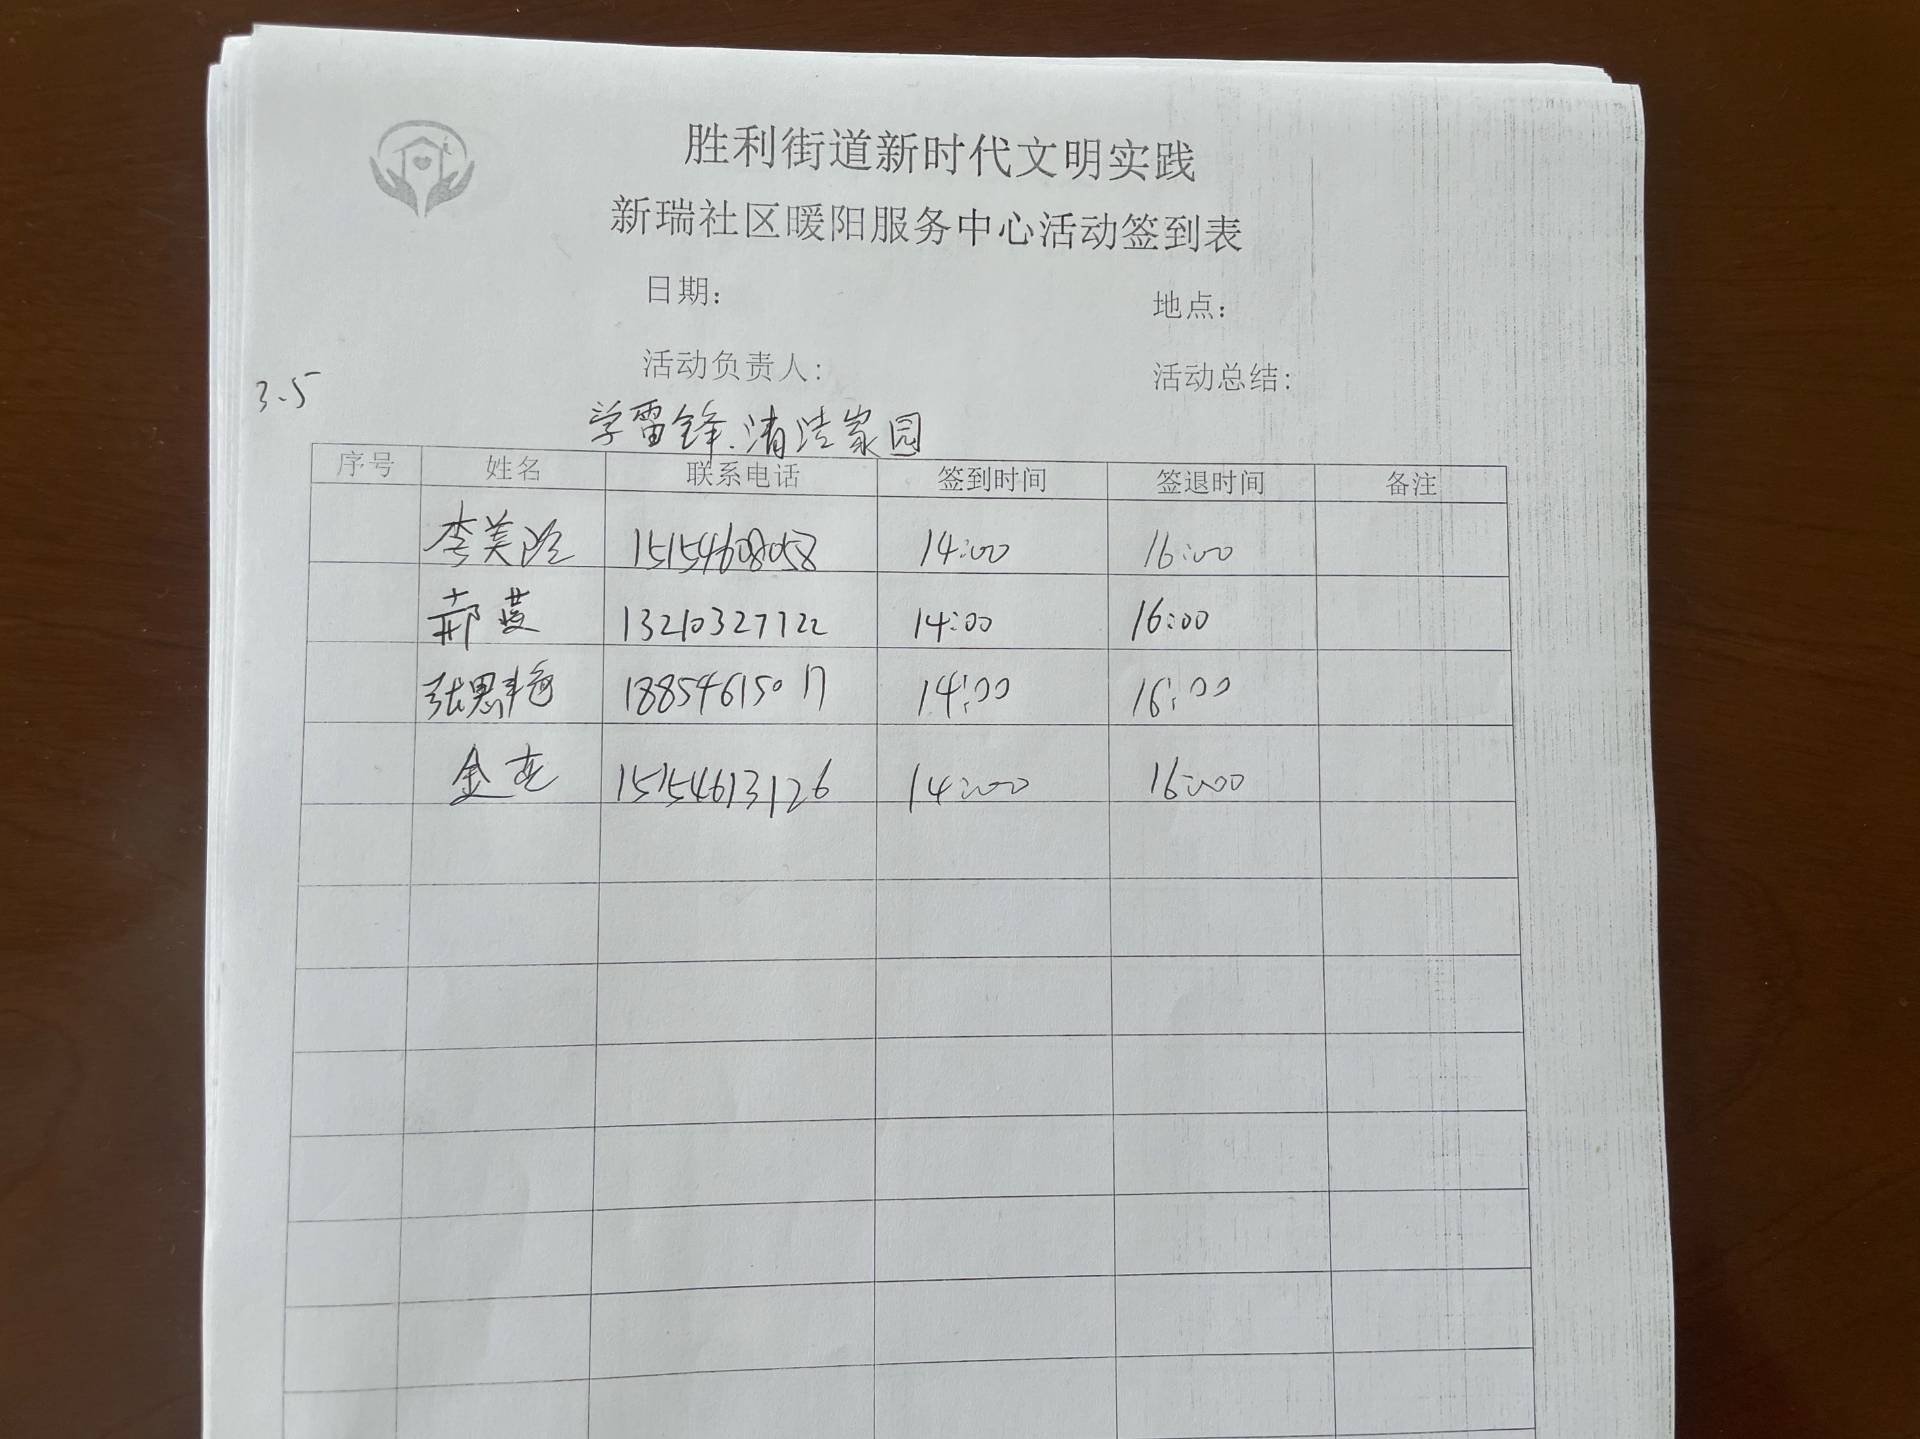 胜利街道新时代文明实践
新瑞社区暖阳服务中心活动签到表
日期： 地点：
活动负责人： 活动总结：
3.5
学雷锋.清洁家园
序号 姓名 联系电话 签到时间 签退时间 备注
李美玲 15154608058 14:00 16:00
郝莲 13210327122 14:00 16:00
张思 18854615017 14:00 16:00
金 15154613126 14:00 16:00